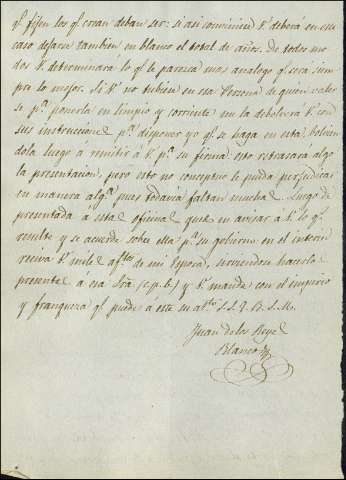 qᵉ fijen los qᵉ crean deban ser: si asi conviniere Vᵈ deberá en ese
caso dejarse tambien en blanco el total de años. De todos mo
dos Vᵈ determinará lo qᵉ le paresca mas analogo qᵉ sera siem
pre lo mejor. Si Vᵈ no tubiere en esa Persona de quien valer
se pᵃ ponerla en limpio y corriente me la debolverá Vᵈ con
sus instrucciones pᵃ disponer yo qᵉ se haga en esta, bolvien
dola luego á remitir á Vᵈ pᵃ su firma: esto retrasara algo
la presentacion, pero esto no conceptuo le pueda perjudicar
en manera algᵃ pues todavia faltan muchas. Luego qᵉ
presentada á este oficial que me avisar á Vᵈ lo qᵉ
resulte y se acuerde sobre ella pᵃ su gobierno: en el interin
reciva Vᵈ mil afᵗᵒˢ de mi Esposa, sirviendose hacerlo
presente á esa Sʳᵃ (c.p.b.) y Vᵈ mande con el imperio
y franqueza qᵉ puede á este su atᵗᵒ S.S.Q.B.S.M.
Juan de los Reyes
Blanco